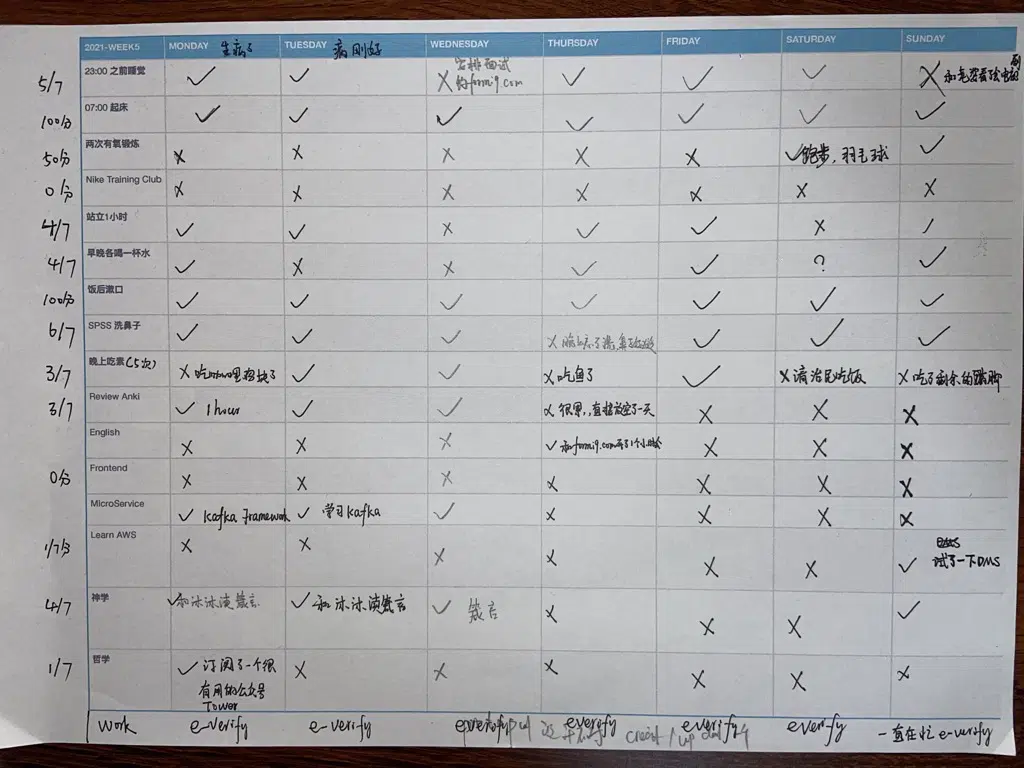 2021-WEEK5 MONDAY 生病了 TUESDAY 病刚好 WEDNESDAY THURSDAY FRIDAY SATURDAY SUNDAY
5/7 23:00 之前睡觉 ✓ ✓ ✗ 安排面试 ✓ ✓ ✓ ✗
formi9.com
100分 07:00 起床 ✓ ✓ ✓ ✓ ✓ ✓ ✓
50分 两次有氧锻炼 ✗ ✗ ✗ ✗ ✗ ✓ 跑步,羽毛球 ✓
0分 Nike Training Club ✗ ✗ ✗ ✗ ✗ ✗ ✗
4/7 站立1小时 ✓ ✓ ✗ ✓ ✓ ✗ ✓
4/7 早晚各喝一杯水 ✓ ✗ ✗ ✓ ✓ ? ✓
100分 饭后漱口 ✓ ✓ ✓ ✓ ✓ ✓ ✓
6/7 SPSS 洗鼻子 ✓ ✓ ✓ ✗ ✓ ✓ ✓
3/7 晚上吃素(5次) ✗ ✓ ✓ ✗ 吃鱼了 ✓ ✗ 请治民吃饭 ✗ 吃了剩余的蹄脚
3/7 Review Anki ✓ 1 hour ✓ ✓ ✗ 很累,直接放空了一天 ✗ ✗ ✗
English ✗ ✗ ✗ ✓ 和formi9.com聊了1个小时 ✗ ✗ ✗
0分 Frontend ✗ ✗ ✗ ✗ ✗ ✗ ✗
MicroService ✓ Kafka Framework ✓ 学习Kafka ✓ ✗ ✗ ✗ ✗
1/7分 Learn AWS ✗ ✗ ✗ ✗ ✗ ✗ ✓ 试了一下DMS
4/7 神学 ✓ 和冰冰读箴言 ✓ 和冰冰读箴言 ✓ 箴言 ✗ ✗ ✗ ✓
1/7 哲学 ✓ 订阅了一个很 ✗ ✗ ✗ ✗ ✗ ✗
有用的公众号
Tower
Work e-verify e-verify everify everify everify 一直在忙 e-verify